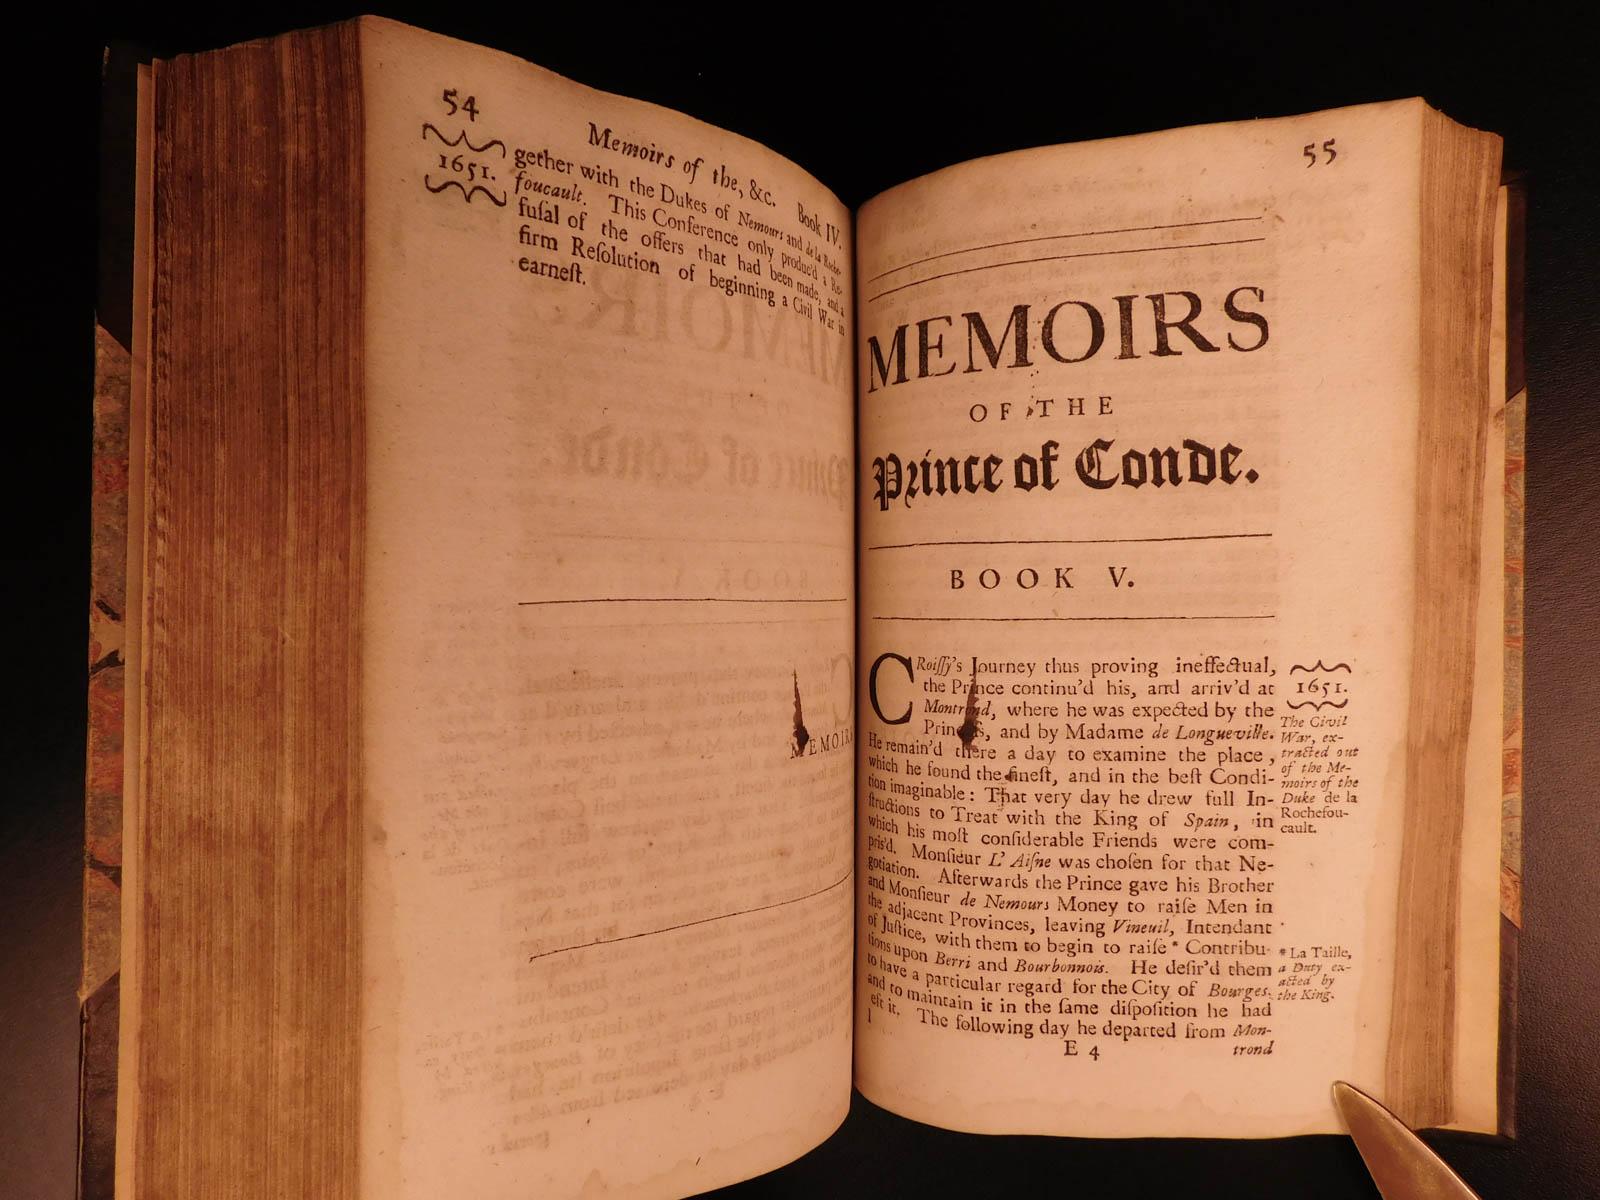 54
Memoirs of the, &c. Book IV.
1651.
gether with the Dukes of Nemours and de la Roche-
foucault. This Conference only produc'd a Re-
fuſal of the offers that had been made, and a
firm Reſolution of beginning a Civil War in
earneſt.
MEMOIRS
55
MEMOIRS
OF THE
Prince of Conde.
BOOK V.
CRoiſſy's Journey thus proving ineffectual,
the Prince continu'd his, and arriv'd at
Montrond, where he was expected by the
Princeſs, and by Madame de Longueville.
He remain'd there a day to examine the place,
which he found the fineſt, and in the beſt Condi-
tion imaginable: That very day he drew full In-
ſtructions to Treat with the King of Spain, in
which his moſt conſiderable Friends were com-
pris'd. Monſieur L'Aiſne was choſen for that Ne-
gotiation. Afterwards the Prince gave his Brother
and Monſieur de Nemours Money to raiſe Men in
the adjacent Provinces, leaving Vineuil, Intendant
of Juſtice, with them to begin to raiſe * Contribu-
tions upon Berri and Bourbonnois. He deſir'd them
to have a particular regard for the City of Bourges,
and to maintain it in the ſame diſpoſition he had
eft it. The following day he departed from Mon-
E 4
trond
1651.
The Civil
War, ex-
tracted out
of the Me-
moirs of the
Duke de la
Rochefou-
cault.
* La Taille,
a Duty ex-
acted by
the King.